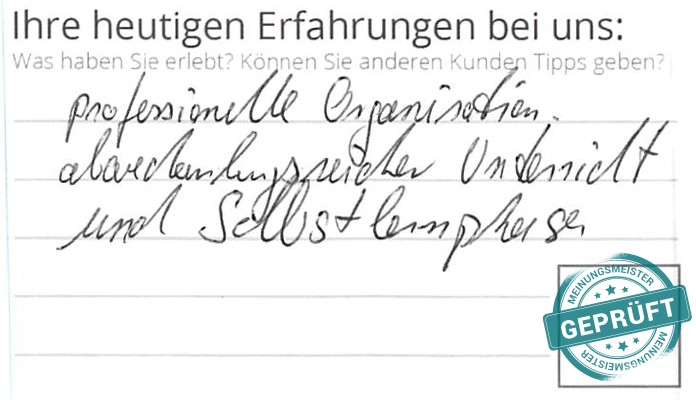 Ihre heutigen Erfahrungen bei uns:
Was haben Sie erlebt? Können Sie anderen Kunden Tipps geben?
professionelle Organisation.
abwechslungsreicher Unterricht
und Selbstlernphasen
MEINUNGSMEISTER
GEPRÜFT
MEINUNGSMEISTER